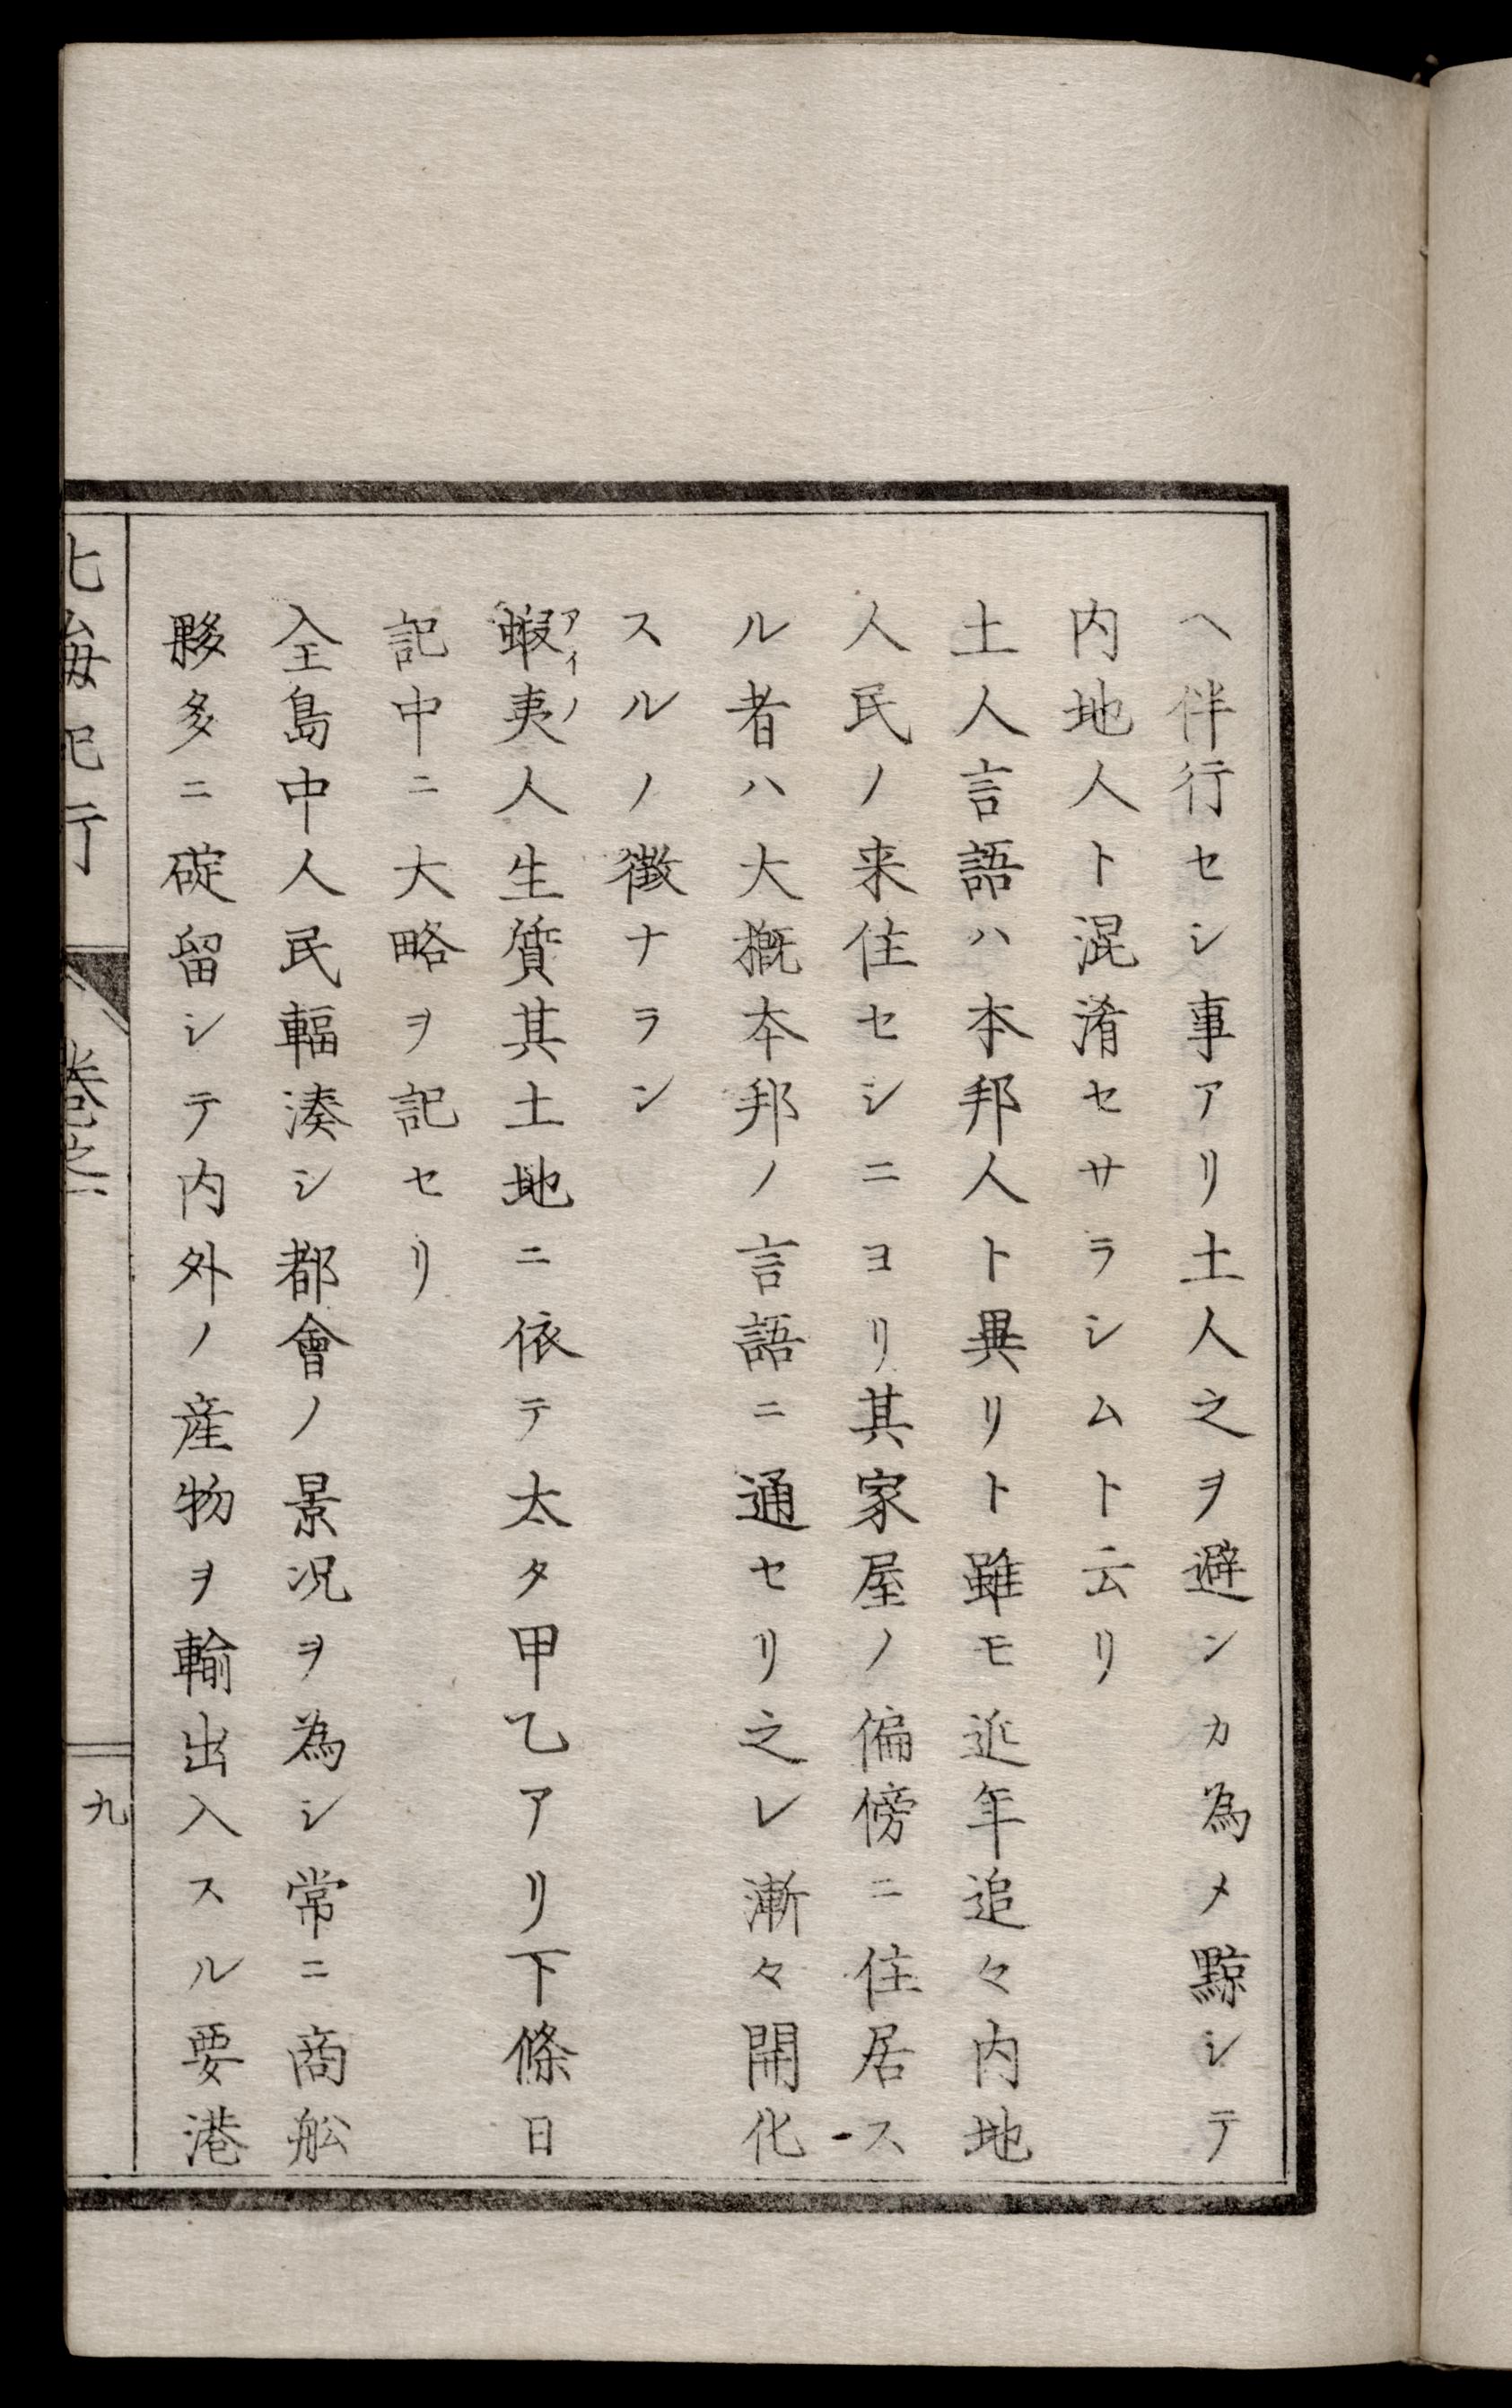 ヘ伴行セシ事アリ土人之ヲ避ンカ為メ黥シテ
内地人ト混淆セサラシムト云リ
土人言語ハ本邦人ト異リト雖モ近年追々内地
人民ノ来住セシニヨリ其家屋ノ偏傍ニ住居ス
ル者ハ大概本邦ノ言語ニ通セリ之レ漸々開化
スルノ徴ナラン
蝦夷人生質其土地ニ依テ太タ甲乙アリ下條日
アイノ
記中ニ大略ヲ記セリ
全島中人民輻湊シ都會ノ景況ヲ為シ常ニ商舩
夥多ニ碇留シテ内外ノ産物ヲ輸出入スル要港
北海紀行 卷之一 九